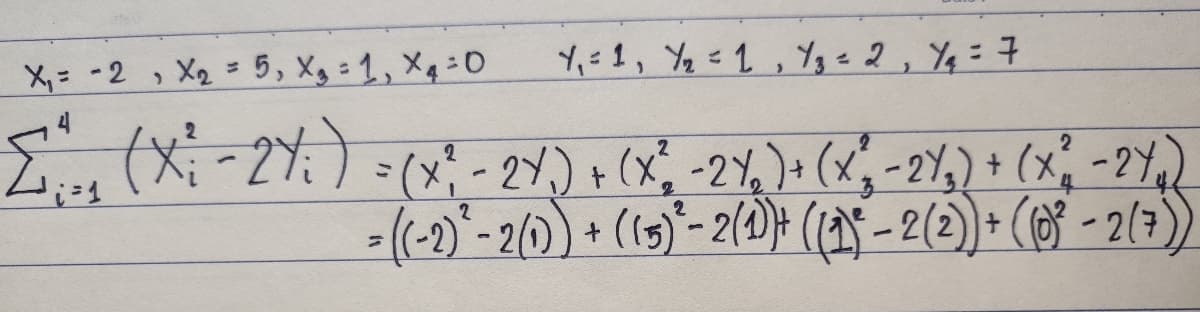 X₁ = -2 , X₂ = 5, X₃ = 1, X₄ = 0 Y₁ = 1, Y₂ = 1 , Y₃ = 2 , Y₄ = 7
∑⁴ᵢ₌₁ (Xᵢ² - 2Yᵢ) = (X₁² - 2Y₁) + (X₂² - 2Y₂) + (X₃² - 2Y₃) + (X₄² - 2Y₄)
= ((-2)² - 2(1)) + ((5)² - 2(1)) + ((1)² - 2(2)) + ((0)² - 2(7))